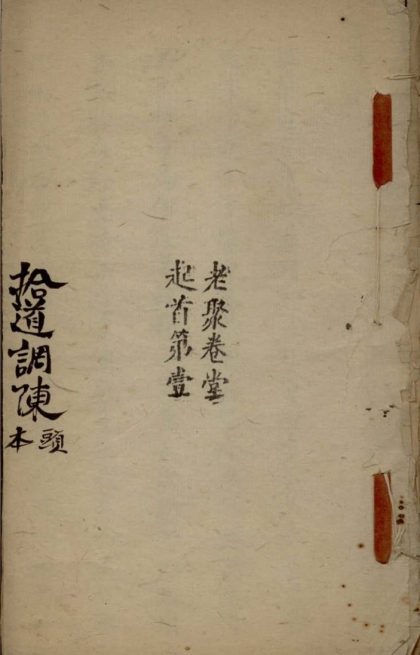 老聚卷堂
起首第壹
拾道調陳
頭本